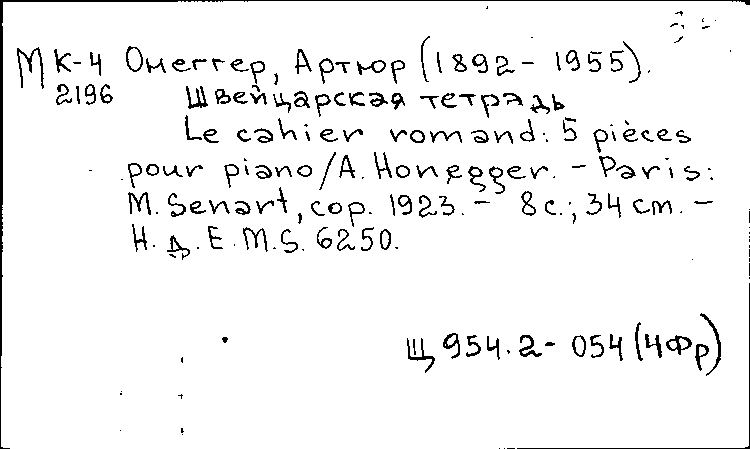 МК-4 Онеггер, Артюр (1892 - 1955).
2196 Швейцарская тетрадь
Le cahier romand: 5 pièces
pour piano/A. Honegger. - Paris:
M. Senart, cop. 1923. - 8 с.; 34 cm. -
Н. д. E. M. S. 6250.
Щ 954.2 - 054 (4Фр)